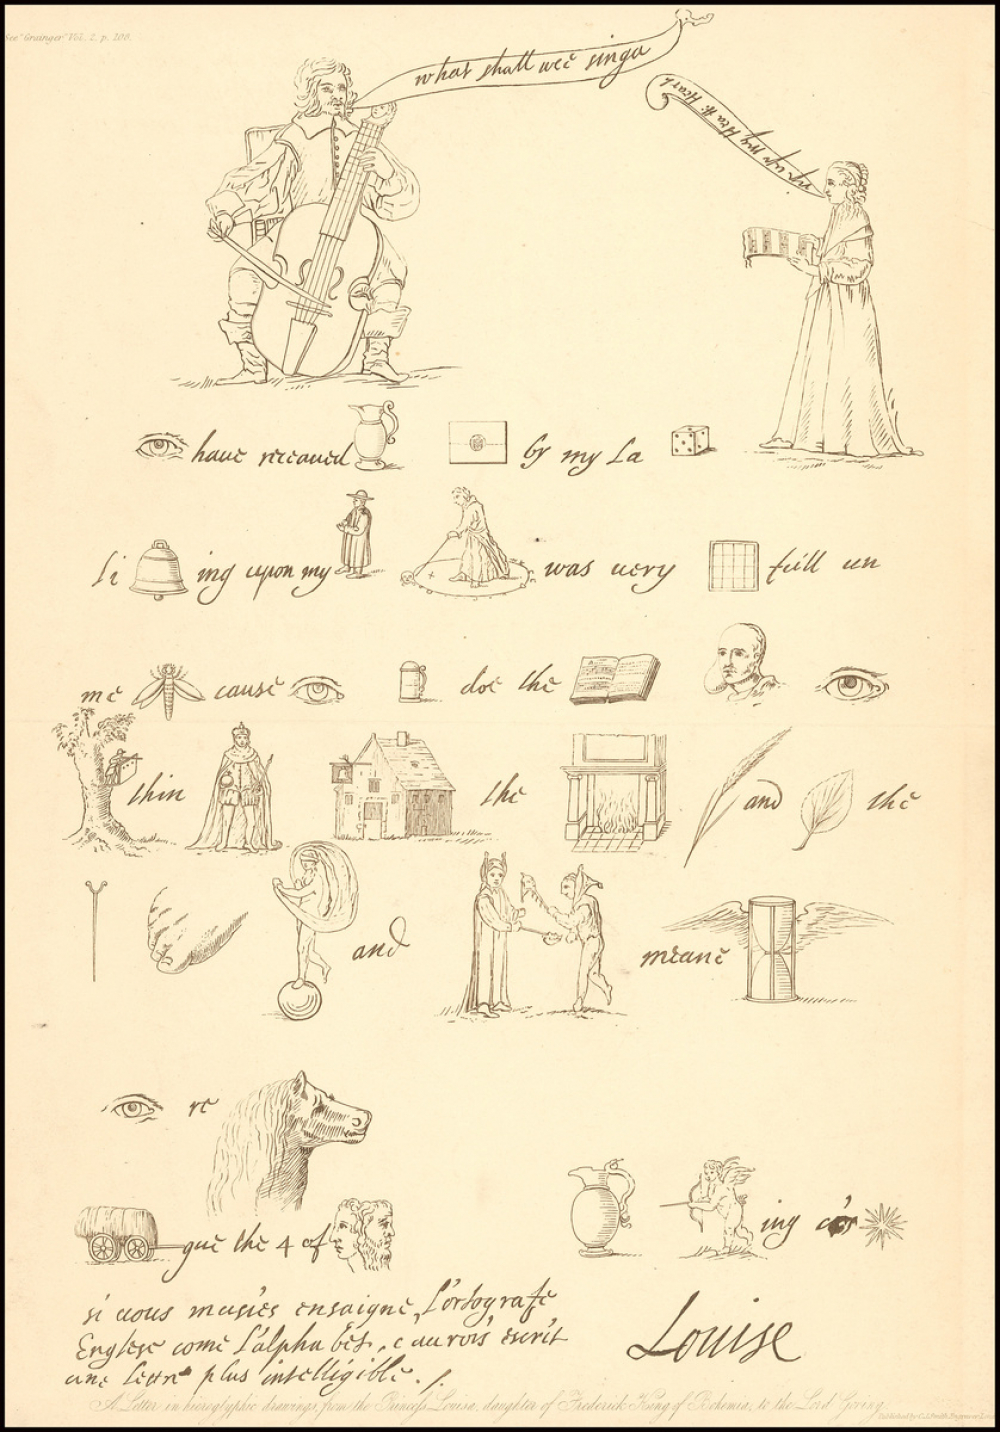 See "Grainger" VOL. 2. p. 208.
what shall wee singa
upon my Hearth
have receaved by my La
li ing upon my was very full un
me cause doe the
thin the and the
and meane
re
gue the 4 of ing
si vous m'usies ensaigné, l'ortografe
Englese come l'alpha bet, c aurois escrit
une lettre plus intelligible.
Louise
A Letter in hieroglyphic drawings, from the Princess Louisa, daughter of Frederick King of Bohemia, to the Lord Goring.